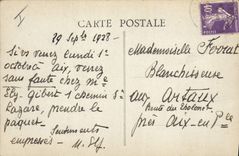 CARTE POSTALE
29 Sept 1928 -
Si vs venez lundi 1er
octobre Aix, venez
sans faute chez Mr
Ely. Gibert 1 chemin St
Lazare, prendre le
paquet.
Sentiments
empressés -
Mademoiselle
Blanchisseuse
aux Artaux
Route du Tholonet
près Aix-en-Pce